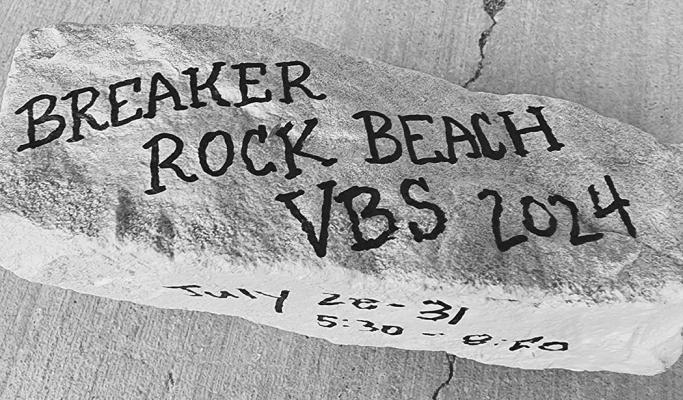 BREAKER
ROCK BEACH
VBS 2024
July 28-31
5:30 -